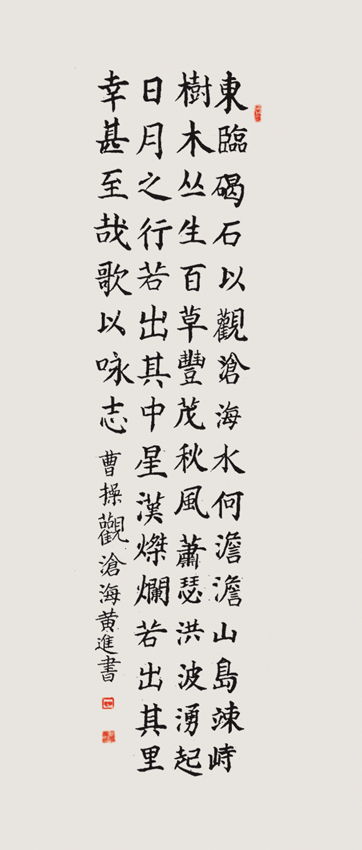 東臨碣石以觀滄海水何澹澹山島竦峙
樹木丛生百草豐茂秋風蕭瑟洪波湧起
日月之行若出其中星漢燦爛若出其里
幸甚至哉歌以咏志 曹操觀滄海黄進書